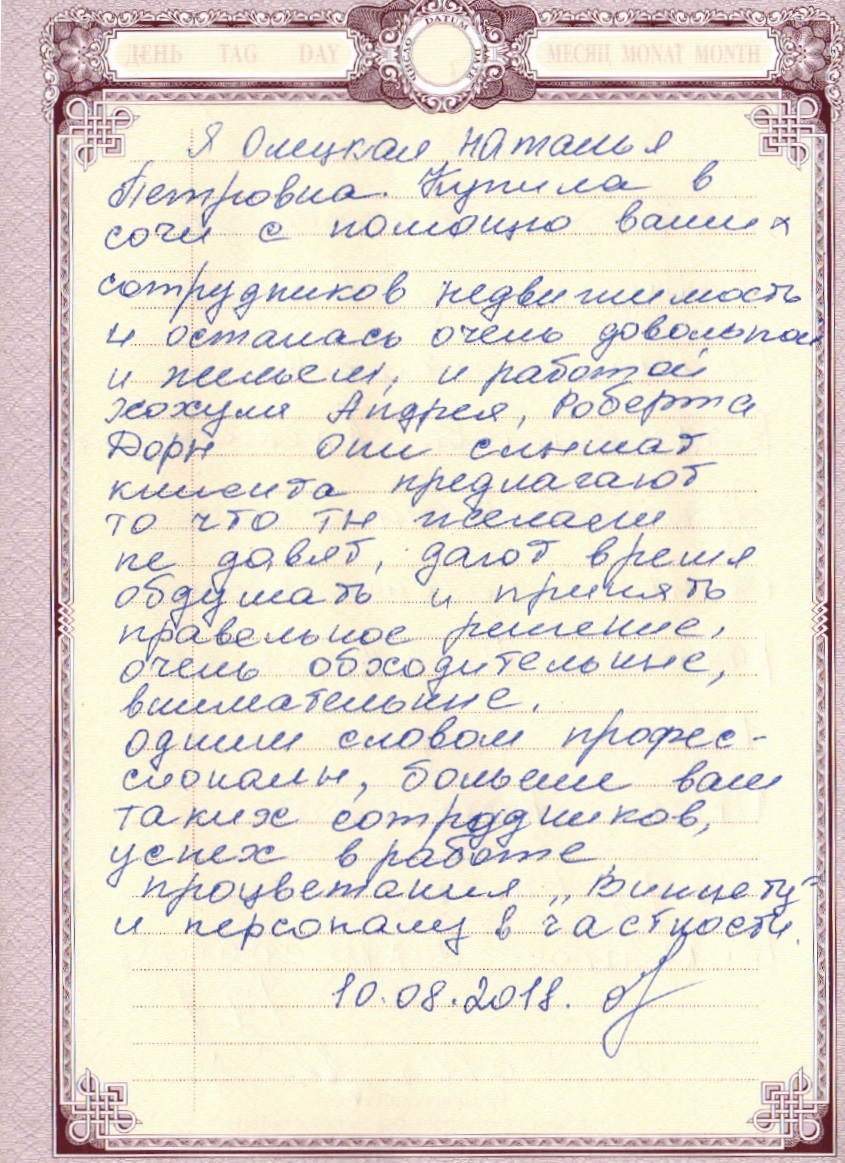 ДЕНЬ TAG DAY
DATUM
МЕСЯЦ MONAT MONTH
Я Олецкая Наталья
Петровна. Купила в
сочи с помощю ваших
сотрудников недвижимость
и осталась очень довольной
и жильем, и работой
Хохуля Андрея, Роберта
Дорн Они слышат
клиента предлагают
то что ты желаеш
не давят, дают время
обдумать и принять
правельное решение,
очень обходительные,
внимательные.
Одним словом профес-
сионалы, больше вам
таких сотрудников,
успех в работе,
процветания „Винцету"
и персоналу в частности.
10.08.2018.